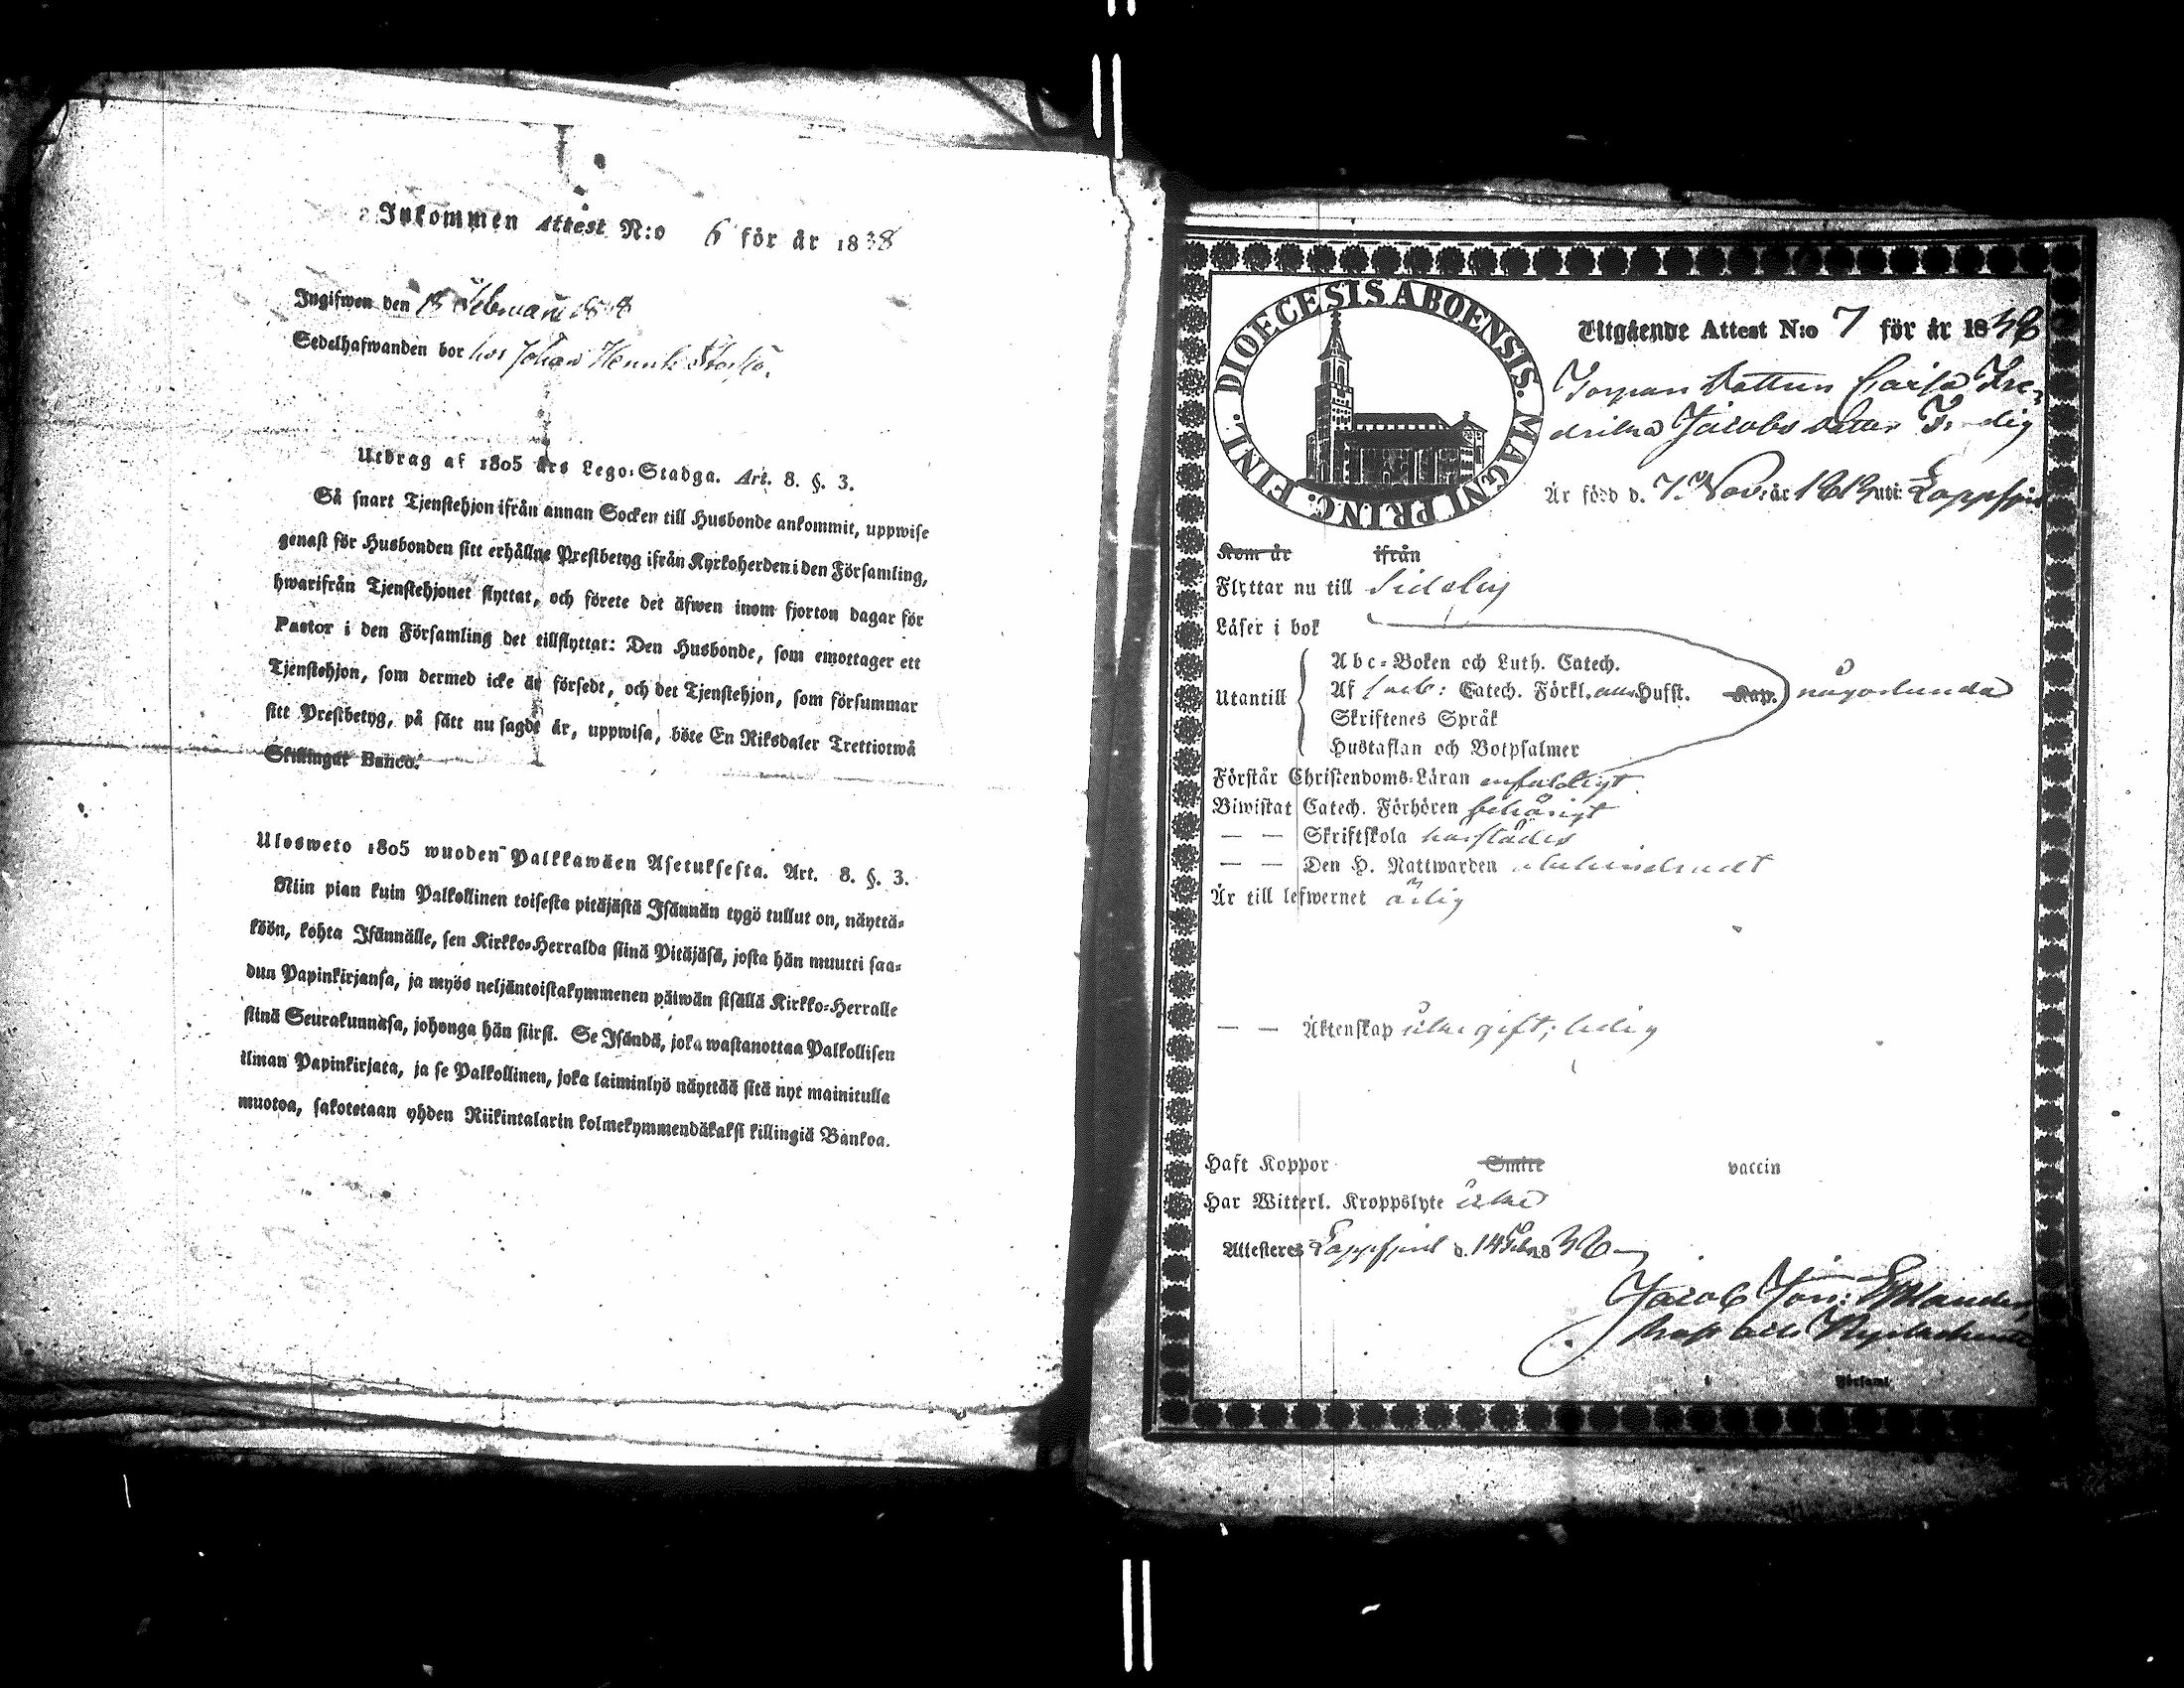 Inkommen Attest N:o 6 för år 1838
Ingifwen den 18 Februarii 1838
Sedelhafwanden bor hos Johan Henrik
Utdrag af 1805 års Lego-Stadga. Art. 8. §. 3.
Så snart Tjenstehjon ifrån annan Socken till Husbonde ankommit, uppwise
genast för Husbonden sitt erhållne Prestbetyg ifrån Kyrkoherden i den Församling,
hwarifrån Tjenstehjonet flyttat, och förete det äfwen inom fjorton dagar för
Pastor i den Församling det tillflyttat: Den Husbonde, som emottager ett
Tjenstehjon, som dermed icke är försedt, och det Tjenstehjon, som försummar
sitt Prestbetyg, på sätt nu sagdt är, uppwisa, böte En Riksdaler Trettiotwå
Skillingar Banco.
Ulosweto 1805 wuoden Palkkawäen Asetuksesta. Art. 8. §. 3.
Niin pian kuin Palkollinen toisesta pitäjästä Isännän tygö tullut on, näyttä-
köön, kohta Isännälle, sen Kirkko-Herralda siinä Pitäjäsä, josta hän muutti saa-
dun Papinkirjansa, ja myös neljäntoistakymmenen päiwän sisällä Kirkko-Herralle
siinä Seurakunnasa, johonga hän siirst. Se Isändä, joka wastanottaa Palkollisen
ilman Papinkirjata, ja se Palkollinen, joka laiminlyö näyttää sitä nyt mainitulla
muotoa, sakotetaan yhden Riikintalarin kolmekymmendäkaksi killingiä Bankoa.
DIOECESIS ABOENSIS. MAGNI PRINC. FINL.
Utgående Attest N:o 7 för år 1838
Torpare Dottren Caisa Fre-
drika Jacobs dotter
Är född d. 7. Nov: år 1813 uti Lappfjerd
Kom år ifrån
Flyttar nu till Sideby
Läser i bok
Utantill
Abc-Boken och Luth. Catech.
Af Catech. Förkl. Hufst. Kap. någorlunda
Skriftenes Språk
Hustaflan och Botpsalmer
Förstår Christendoms-Läran enfaldigt
Biwistat Catech. Förhören behörigt
— — Skriftskola härstädes
— — Den H. Nattwarden obehindradt
Är till lefwernet ärlig
— — Äktenskap icke gift; ledig
Haft Koppor Smitt vaccin
Har Witterl. Kroppslyte icke
Attesteres Lappfjerd d. 14 Febr. 1838
Jacob Joh:
i Församl.